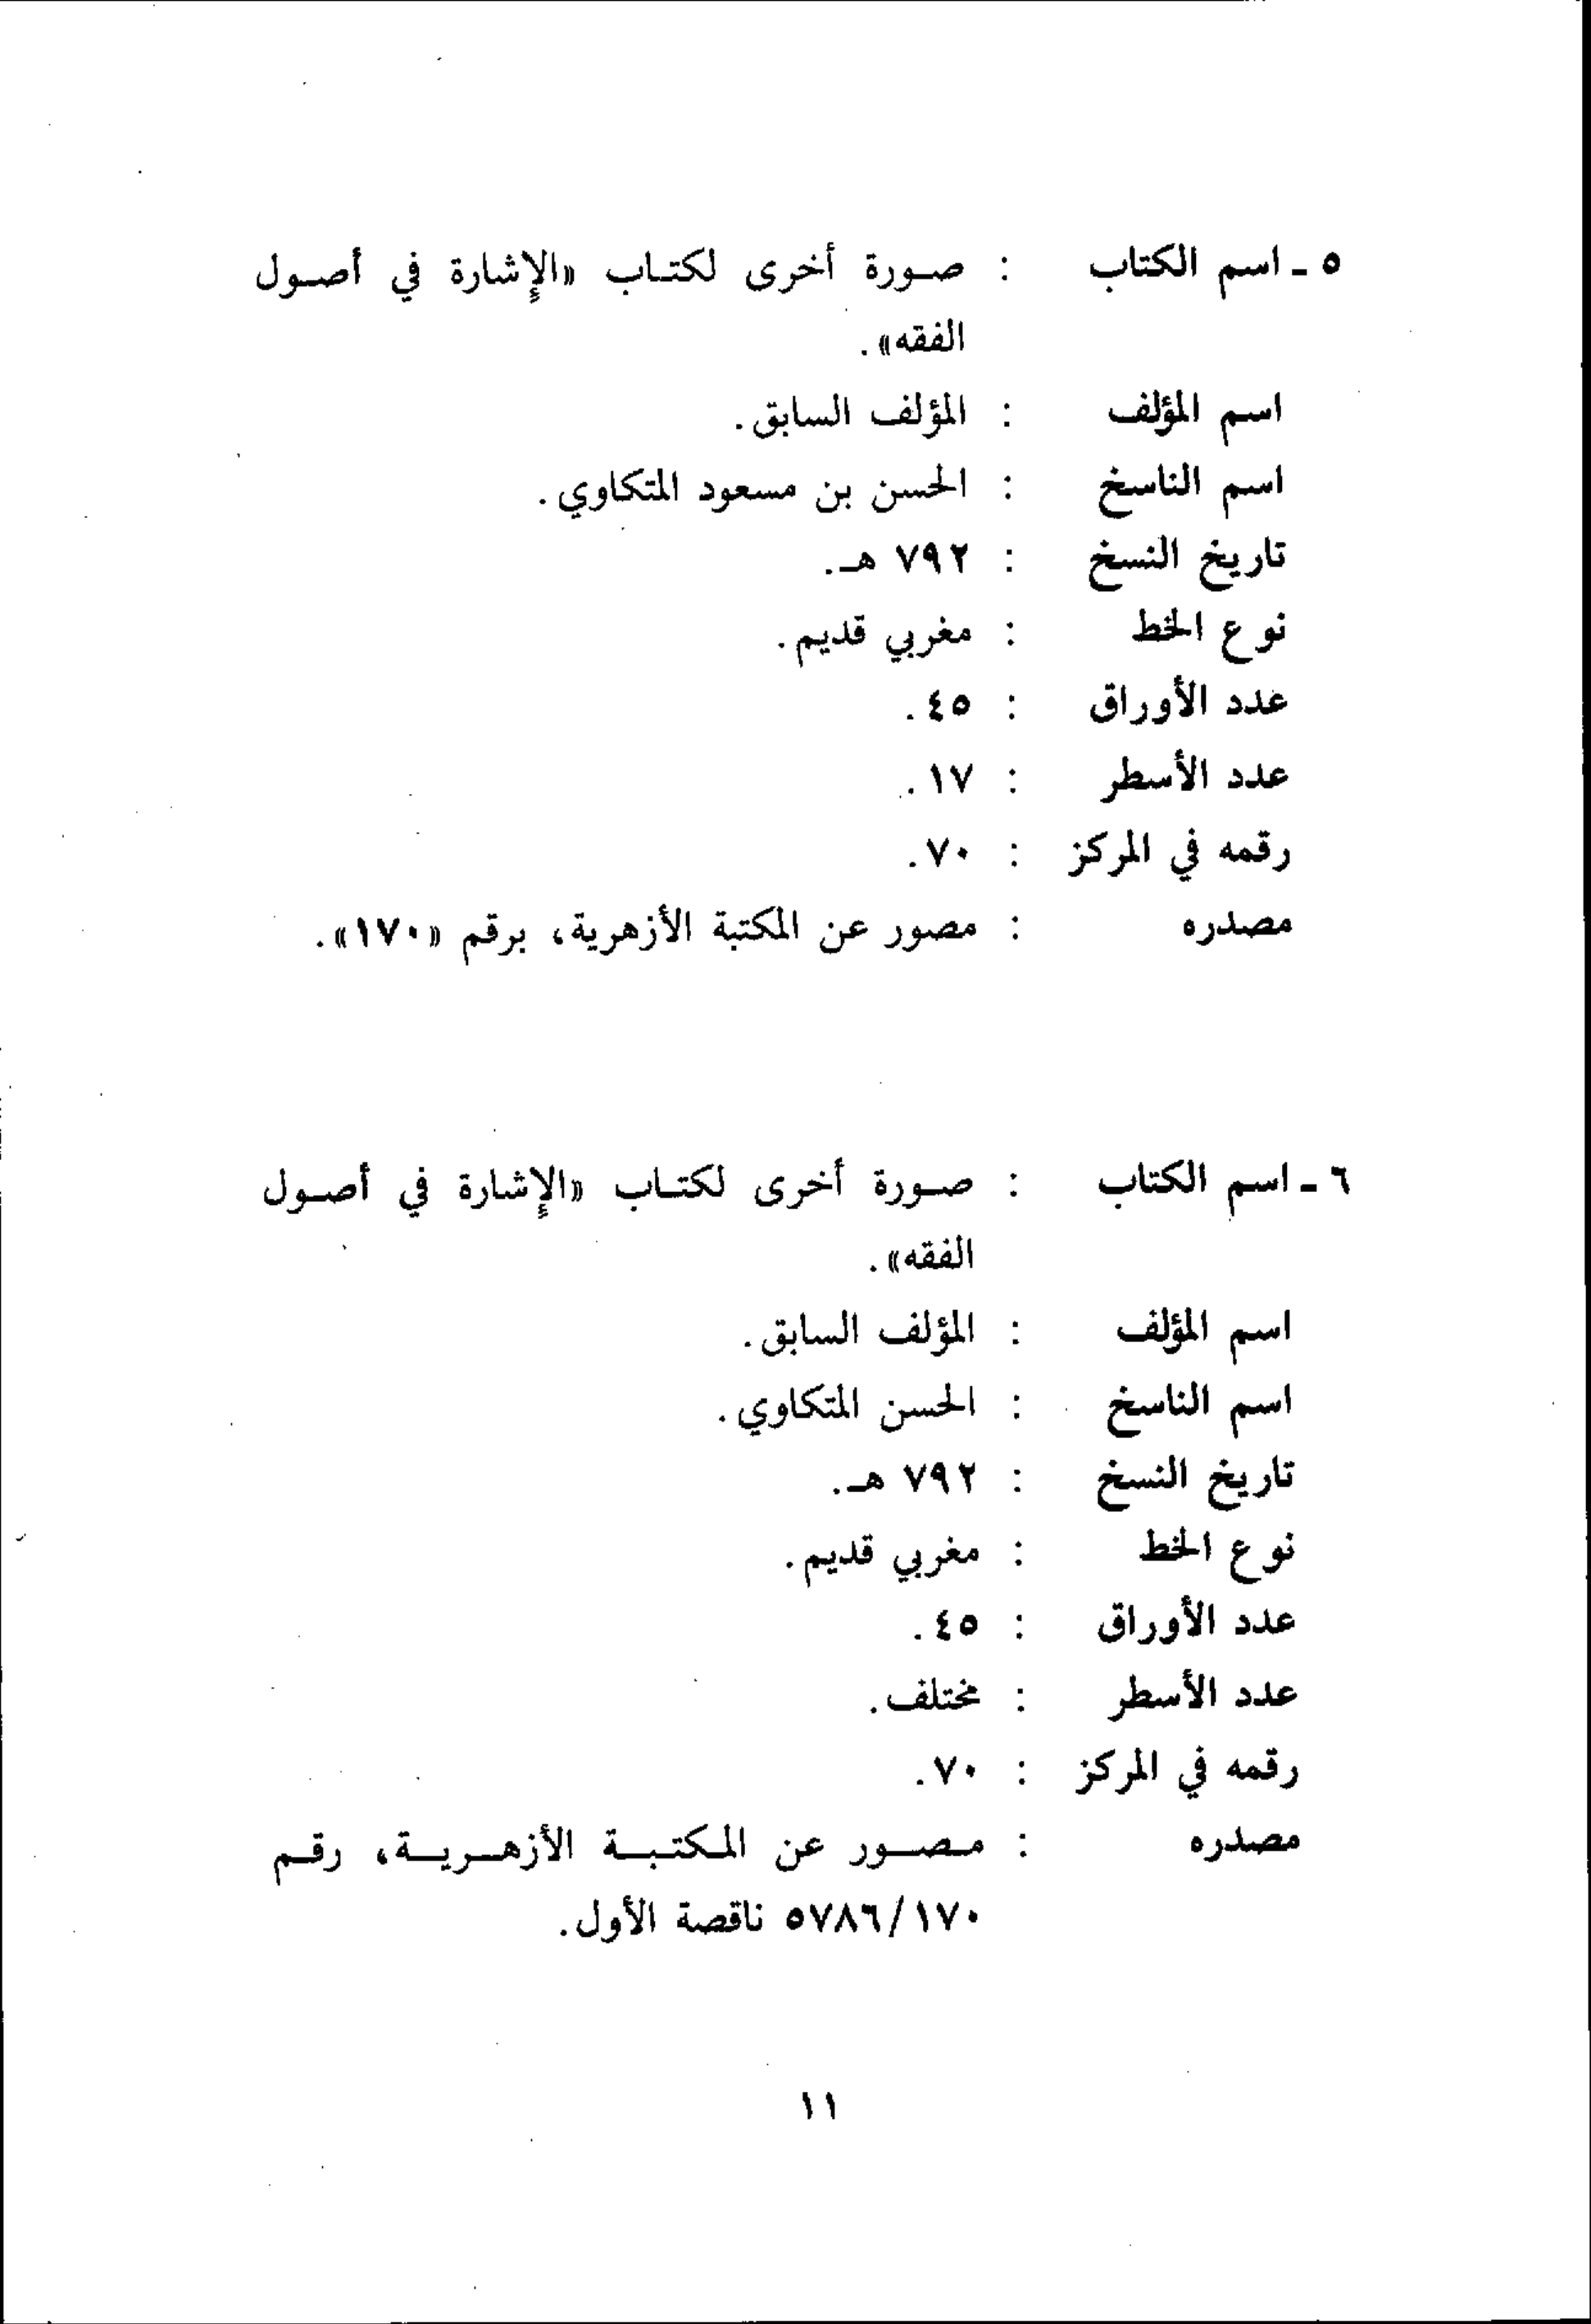 ٥ - اسم الكتاب : صورة أخرى لكتاب «الإشارة في أصول
الفقه».
اسم المؤلف : المؤلف السابق.
اسم الناسخ : الحسن بن مسعود المتكاوي.
تاريخ النسخ : ٧٩٢ هـ.
نوع الخط : مغربي قديم.
عدد الأوراق : ٤٥.
عدد الأسطر : ١٧.
رقمه في المركز : ٧٠.
مصدره : مصور عن المكتبة الأزهرية، برقم «١٧٠».
٦ - اسم الكتاب : صورة أخرى لكتاب «الإشارة في أصول
الفقه».
اسم المؤلف : المؤلف السابق.
اسم الناسخ : الحسن المتكاوي.
تاريخ النسخ : ٧٩٢ هـ.
نوع الخط : مغربي قديم.
عدد الأوراق : ٤٥.
عدد الأسطر : مختلف.
رقمه في المركز : ٧٠.
مصدره : مصور عن المكتبة الأزهرية، رقم
٥٧٨٦/١٧٠ ناقصة الأول.
١١